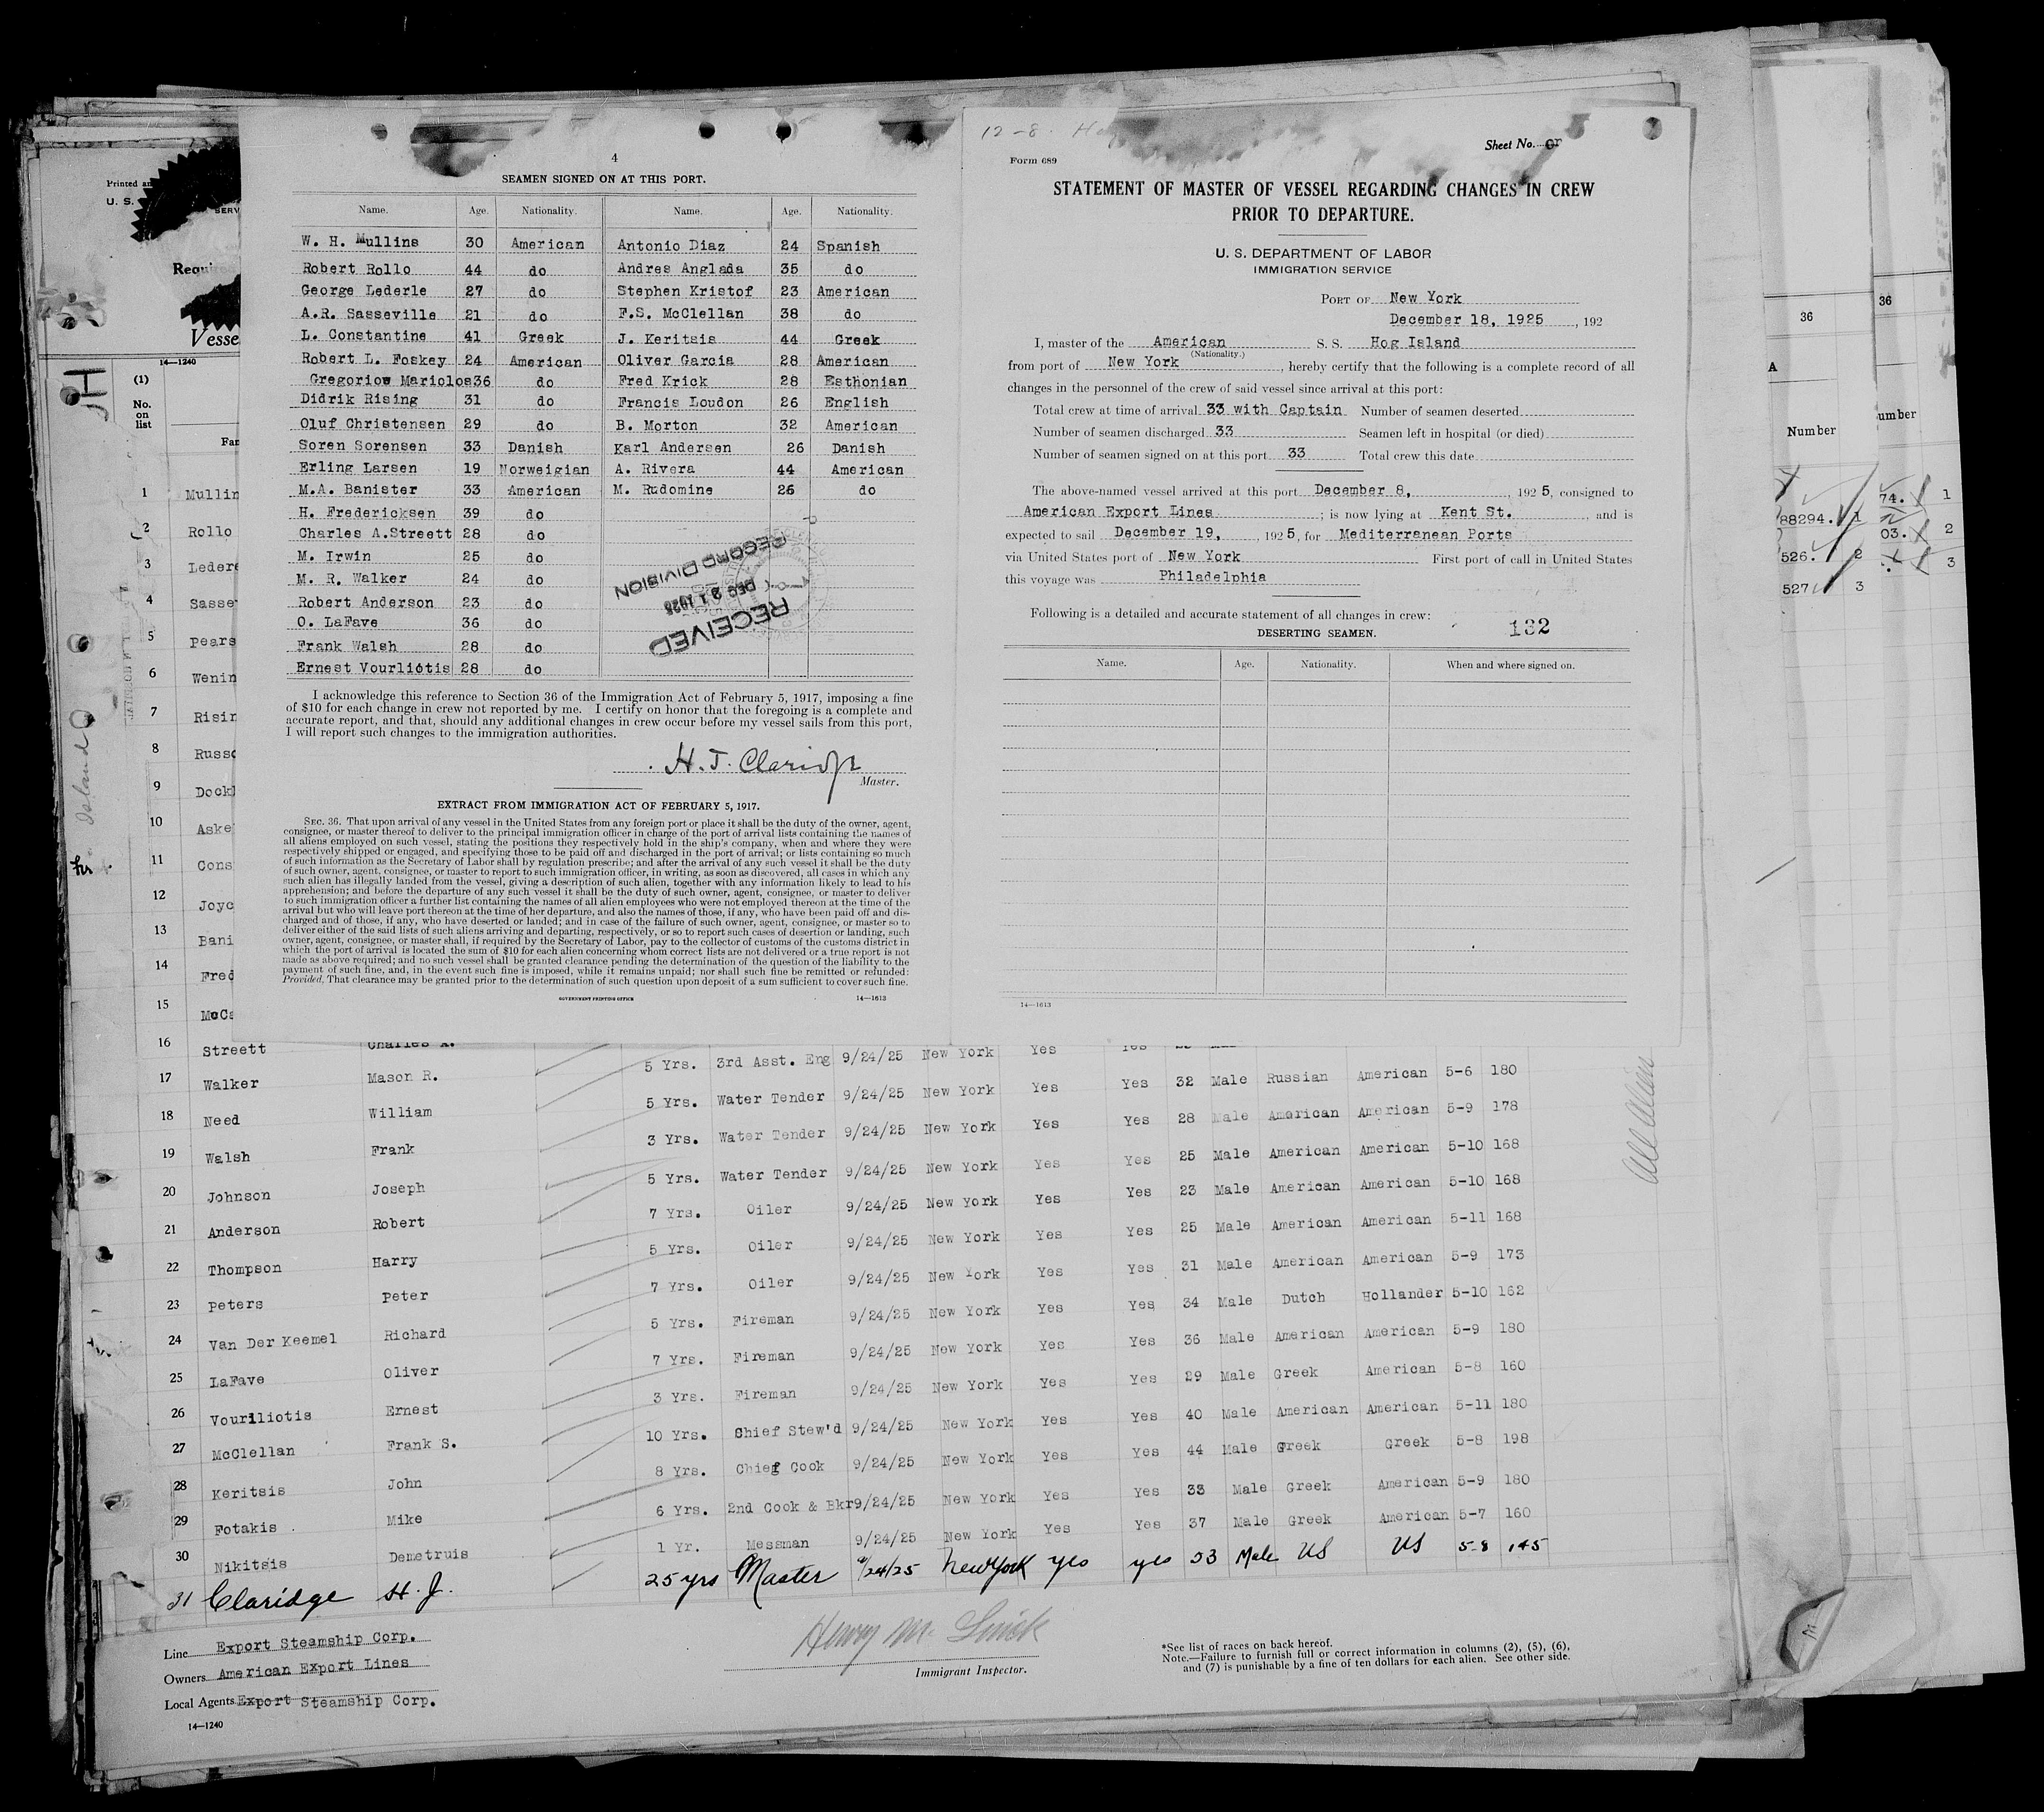 4
SEAMEN SIGNED ON AT THIS PORT.
Name. Age. Nationality. Name. Age. Nationality.
W. H. Mullins 30 American Antonio Diaz 24 Spanish
Robert Rollo 44 do Andres Anglada 35 do
George Lederle 27 do Stephen Kristof 23 American
A.R. Sasseville 21 do F.S. McClellan 38 do
L. Constantine 41 Greek J. Keritsis 44 Greek
Robert L. Foskey 24 American Oliver Garcia 28 American
Gregoriow Mariolos 36 do Fred Krick 28 Esthonian
Didrik Rising 31 do Francis Loudon 26 English
Oluf Christensen 29 do B. Morton 32 American
Soren Sorensen 33 Danish Karl Andersen 26 Danish
Erling Larsen 19 Norweigian A. Rivera 44 American
M.A. Banister 33 American M. Rudomine 26 do
H. Fredericksen 39 do
Charles A.Streett 28 do
M. Irwin 25 do
M. R. Walker 24 do
Robert Anderson 23 do
O. LaFave 36 do
Frank Walsh 28 do
Ernest Vourliotis 28 do
RECEIVED
DEC 21 1925
RECORD DIVISION
I acknowledge this reference to Section 36 of the Immigration Act of February 5, 1917, imposing a fine
of $10 for each change in crew not reported by me. I certify on honor that the foregoing is a complete and
accurate report, and that, should any additional changes in crew occur before my vessel sails from this port,
I will report such changes to the immigration authorities.
H. J. Claridge
Master.
EXTRACT FROM IMMIGRATION ACT OF FEBRUARY 5, 1917.
SEC. 36. That upon arrival of any vessel in the United States from any foreign port or place it shall be the duty of the owner, agent,
consignee, or master thereof to deliver to the principal immigration officer in charge of the port of arrival lists containing the names of
all aliens employed on such vessel, stating the positions they respectively hold in the ship's company, when and where they were
respectively shipped or engaged, and specifying those to be paid off and discharged in the port of arrival; or lists containing so much
of such information as the Secretary of Labor shall by regulation prescribe; and after the arrival of any such vessel it shall be the duty
of such owner, agent, consignee, or master to report to such immigration officer, in writing, as soon as discovered, all cases in which any
such alien has illegally landed from the vessel, giving a description of such alien, together with any information likely to lead to his
apprehension; and before the departure of any such vessel it shall be the duty of such owner, agent, consignee, or master to deliver
to such immigration officer a further list containing the names of all alien employees who were not employed thereon at the time of the
arrival but who will leave port thereon at the time of her departure, and also the names of those, if any, who have been paid off and dis-
charged and of those, if any, who have deserted or landed; and in case of the failure of such owner, agent, consignee, or master so to
deliver either of the said lists of such aliens arriving and departing, respectively, or so to report such cases of desertion or landing, such
owner, agent, consignee, or master shall, if required by the Secretary of Labor, pay to the collector of customs of the customs district in
which the port of arrival is located the sum of $10 for each alien concerning whom correct lists are not delivered or a true report is not
made as above required; and no such vessel shall be granted clearance pending the determination of the question of the liability to the
payment of such fine, and, in the event such fine is imposed, while it remains unpaid; nor shall such fine be remitted or refunded:
Provided, That clearance may be granted prior to the determination of such question upon deposit of a sum sufficient to cover such fine.
GOVERNMENT PRINTING OFFICE 14—1613
12-8.
Sheet No.
Form 689
STATEMENT OF MASTER OF VESSEL REGARDING CHANGES IN CREW
PRIOR TO DEPARTURE.
U. S. DEPARTMENT OF LABOR
IMMIGRATION SERVICE
PORT OF New York
December 18, 1925, 192
I, master of the American S. S. Hog Island
(Nationality.)
from port of New York, hereby certify that the following is a complete record of all
changes in the personnel of the crew of said vessel since arrival at this port:
Total crew at time of arrival 33 with Captain Number of seamen deserted
Number of seamen discharged 33 Seamen left in hospital (or died)
Number of seamen signed on at this port 33 Total crew this date
The above-named vessel arrived at this port December 8, , 1925, consigned to
American Export Lines ; is now lying at Kent St. , and is
expected to sail December 19, , 1925, for Mediterranean Ports
via United States port of New York First port of call in United States
this voyage was Philadelphia
Following is a detailed and accurate statement of all changes in crew:
132
DESERTING SEAMEN.
Name. Age. Nationality. When and where signed on.
14—1613
Printed
U. S.
SERV
Requi
Vesse
14—1240
(1)
No.
on
list
Far
1 Mullin
2 Rollo
3 Ledere
4 Sasse
5 Pears
6 Wenin
7 Risin
8 Russo
9 Dock
10 Aske
11 Cons
12 Joyc
13 Bani
14 Fred
15 McCa
Island
36
A
Number
88294. 1
526. 2
527 3
36
umber
74. 1
03. 2
3
16 Streett Charles A. 5 Yrs. 3rd Asst. Eng 9/24/25 New York Yes Yes
17 Walker Mason R. 5 Yrs. Water Tender 9/24/25 New York Yes Yes 32 Male Russian American 5-6 180
18 Need William 3 Yrs. Water Tender 9/24/25 New York Yes Yes 28 Male American American 5-9 178
19 Walsh Frank 5 Yrs. Water Tender 9/24/25 New York Yes Yes 25 Male American American 5-10 168
20 Johnson Joseph 7 Yrs. Oiler 9/24/25 New York Yes Yes 23 Male American American 5-10 168
21 Anderson Robert 5 Yrs. Oiler 9/24/25 New York Yes Yes 25 Male American American 5-11 168
22 Thompson Harry 7 Yrs. Oiler 9/24/25 New York Yes Yes 31 Male American American 5-9 173
23 Peters Peter 5 Yrs. Fireman 9/24/25 New York Yes Yes 34 Male Dutch Hollander 5-10 162
24 Van Der Keemel Richard 7 Yrs. Fireman 9/24/25 New York Yes Yes 36 Male American American 5-9 180
25 LaFave Oliver 3 Yrs. Fireman 9/24/25 New York Yes Yes 29 Male Greek American 5-8 160
26 Vourlliotis Ernest 10 Yrs. Chief Stew'd 9/24/25 New York Yes Yes 40 Male American American 5-11 180
27 McClellan Frank S. 8 Yrs. Chief Cook 9/24/25 New York Yes Yes 44 Male Greek Greek 5-8 198
28 Keritsis John 6 Yrs. 2nd Cook & Bkr 9/24/25 New York Yes Yes 33 Male Greek American 5-9 180
29 Fotakis Mike 1 Yr. Messman 9/24/25 New York Yes Yes 37 Male Greek American 5-7 160
30 Nikitsis Demetruis
31 Claridge H. J. 25 yrs Master 9/24/25 New York yes yes 53 Male US US 5-8 145
Line Export Steamship Corp.
Owners American Export Lines
Local Agents Export Steamship Corp.
14—1240
Immigrant Inspector.
*See list of races on back hereof.
Note.—Failure to furnish full or correct information in columns (2), (5), (6),
and (7) is punishable by a fine of ten dollars for each alien. See other side.